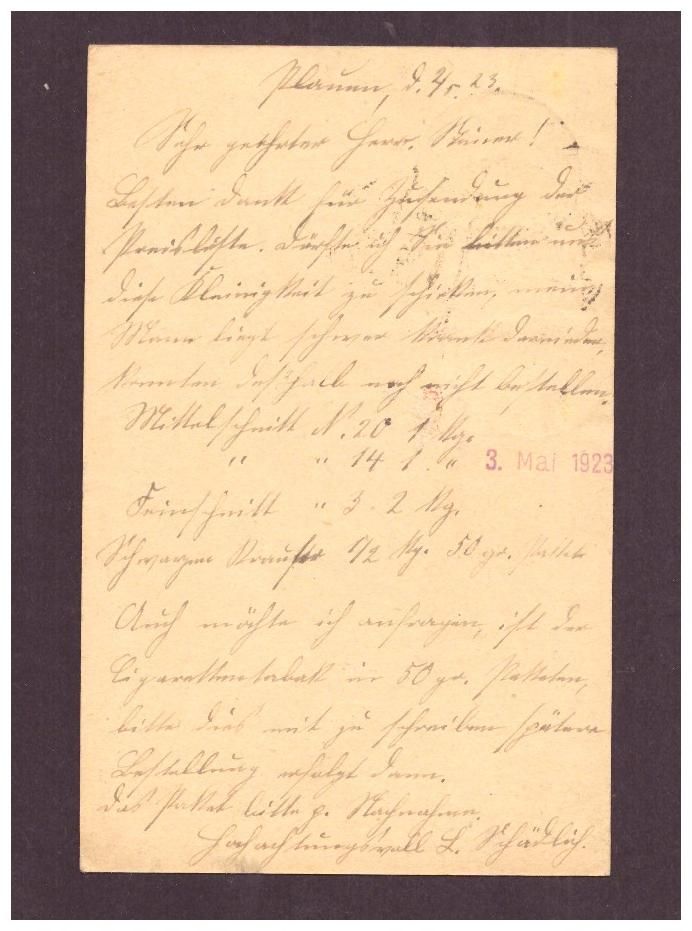 Plauen, d. 2/5. 23.
Sehr geehrter Herr. Steiner!
Besten Dank für Zusendung der
Preisliste. Dürfte ich Sie bitten uns
diese Kleinigkeit zu schicken, mein
Mann liegt schwer krank darnieder,
konnten deßhalb noch nicht bestellen.
Mittelschnitt N. 20 1 Kg.
" " 14 1 "
3. Mai 1923
Feinschnitt " 3. 2 Kg.
Schwarzen Krauser 1/2 Kg. 50 gr. Pakete
Auch möchte ich anfragen, ist der
Cigarettentabak in 50 gr. Paketen,
bitte dies mit zu schreiben spätere
Bestellung erfolgt dann.
Das Paket bitte p. Nachnahme.
Hochachtungsvoll L. Schädlich.